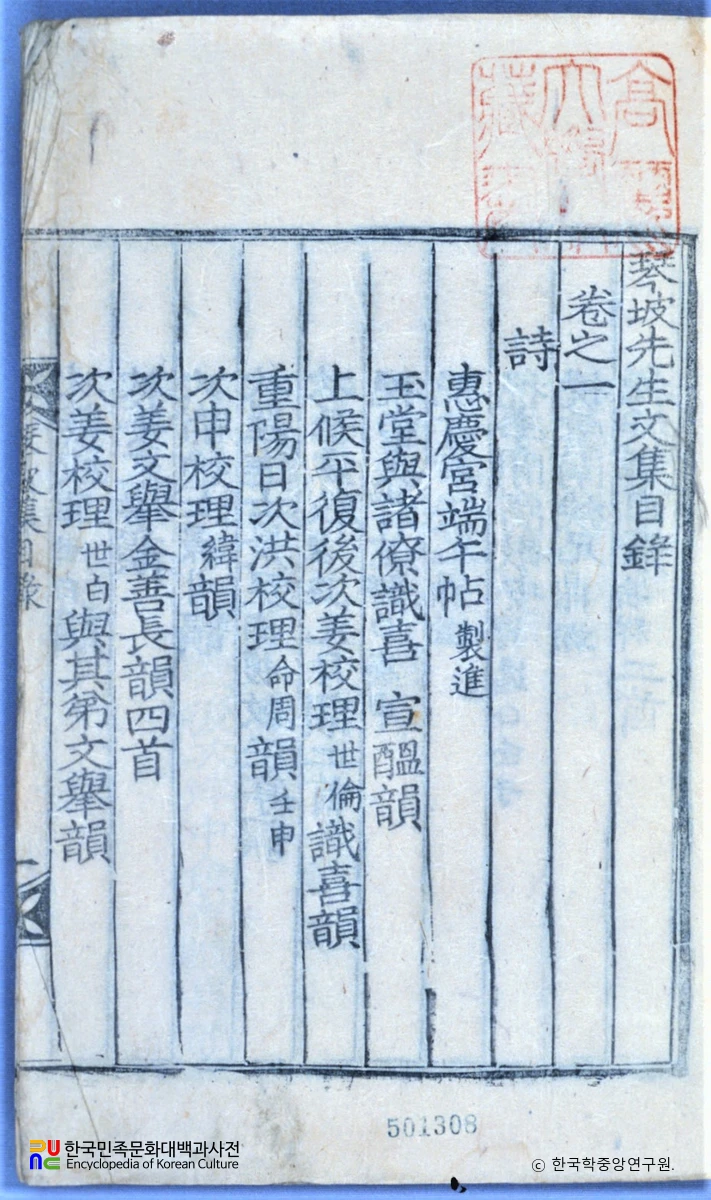 琴坡先生文集目錄
卷之一
詩
惠慶宮端午帖 製進
玉堂與諸僚識喜 宣醞韻
上候平復後次姜校理 世倫 識喜韻
重陽日次洪校理 命周 韻 壬申
次申校理 緯 韻
次姜文擧金善長韻四首
次姜校理 世白 與其弟文擧韻
集目錄
高麗大學 藏書
501308
한국민족문화대백과사전
Encyclopedia of Korean Culture
© 한국학중앙연구원.